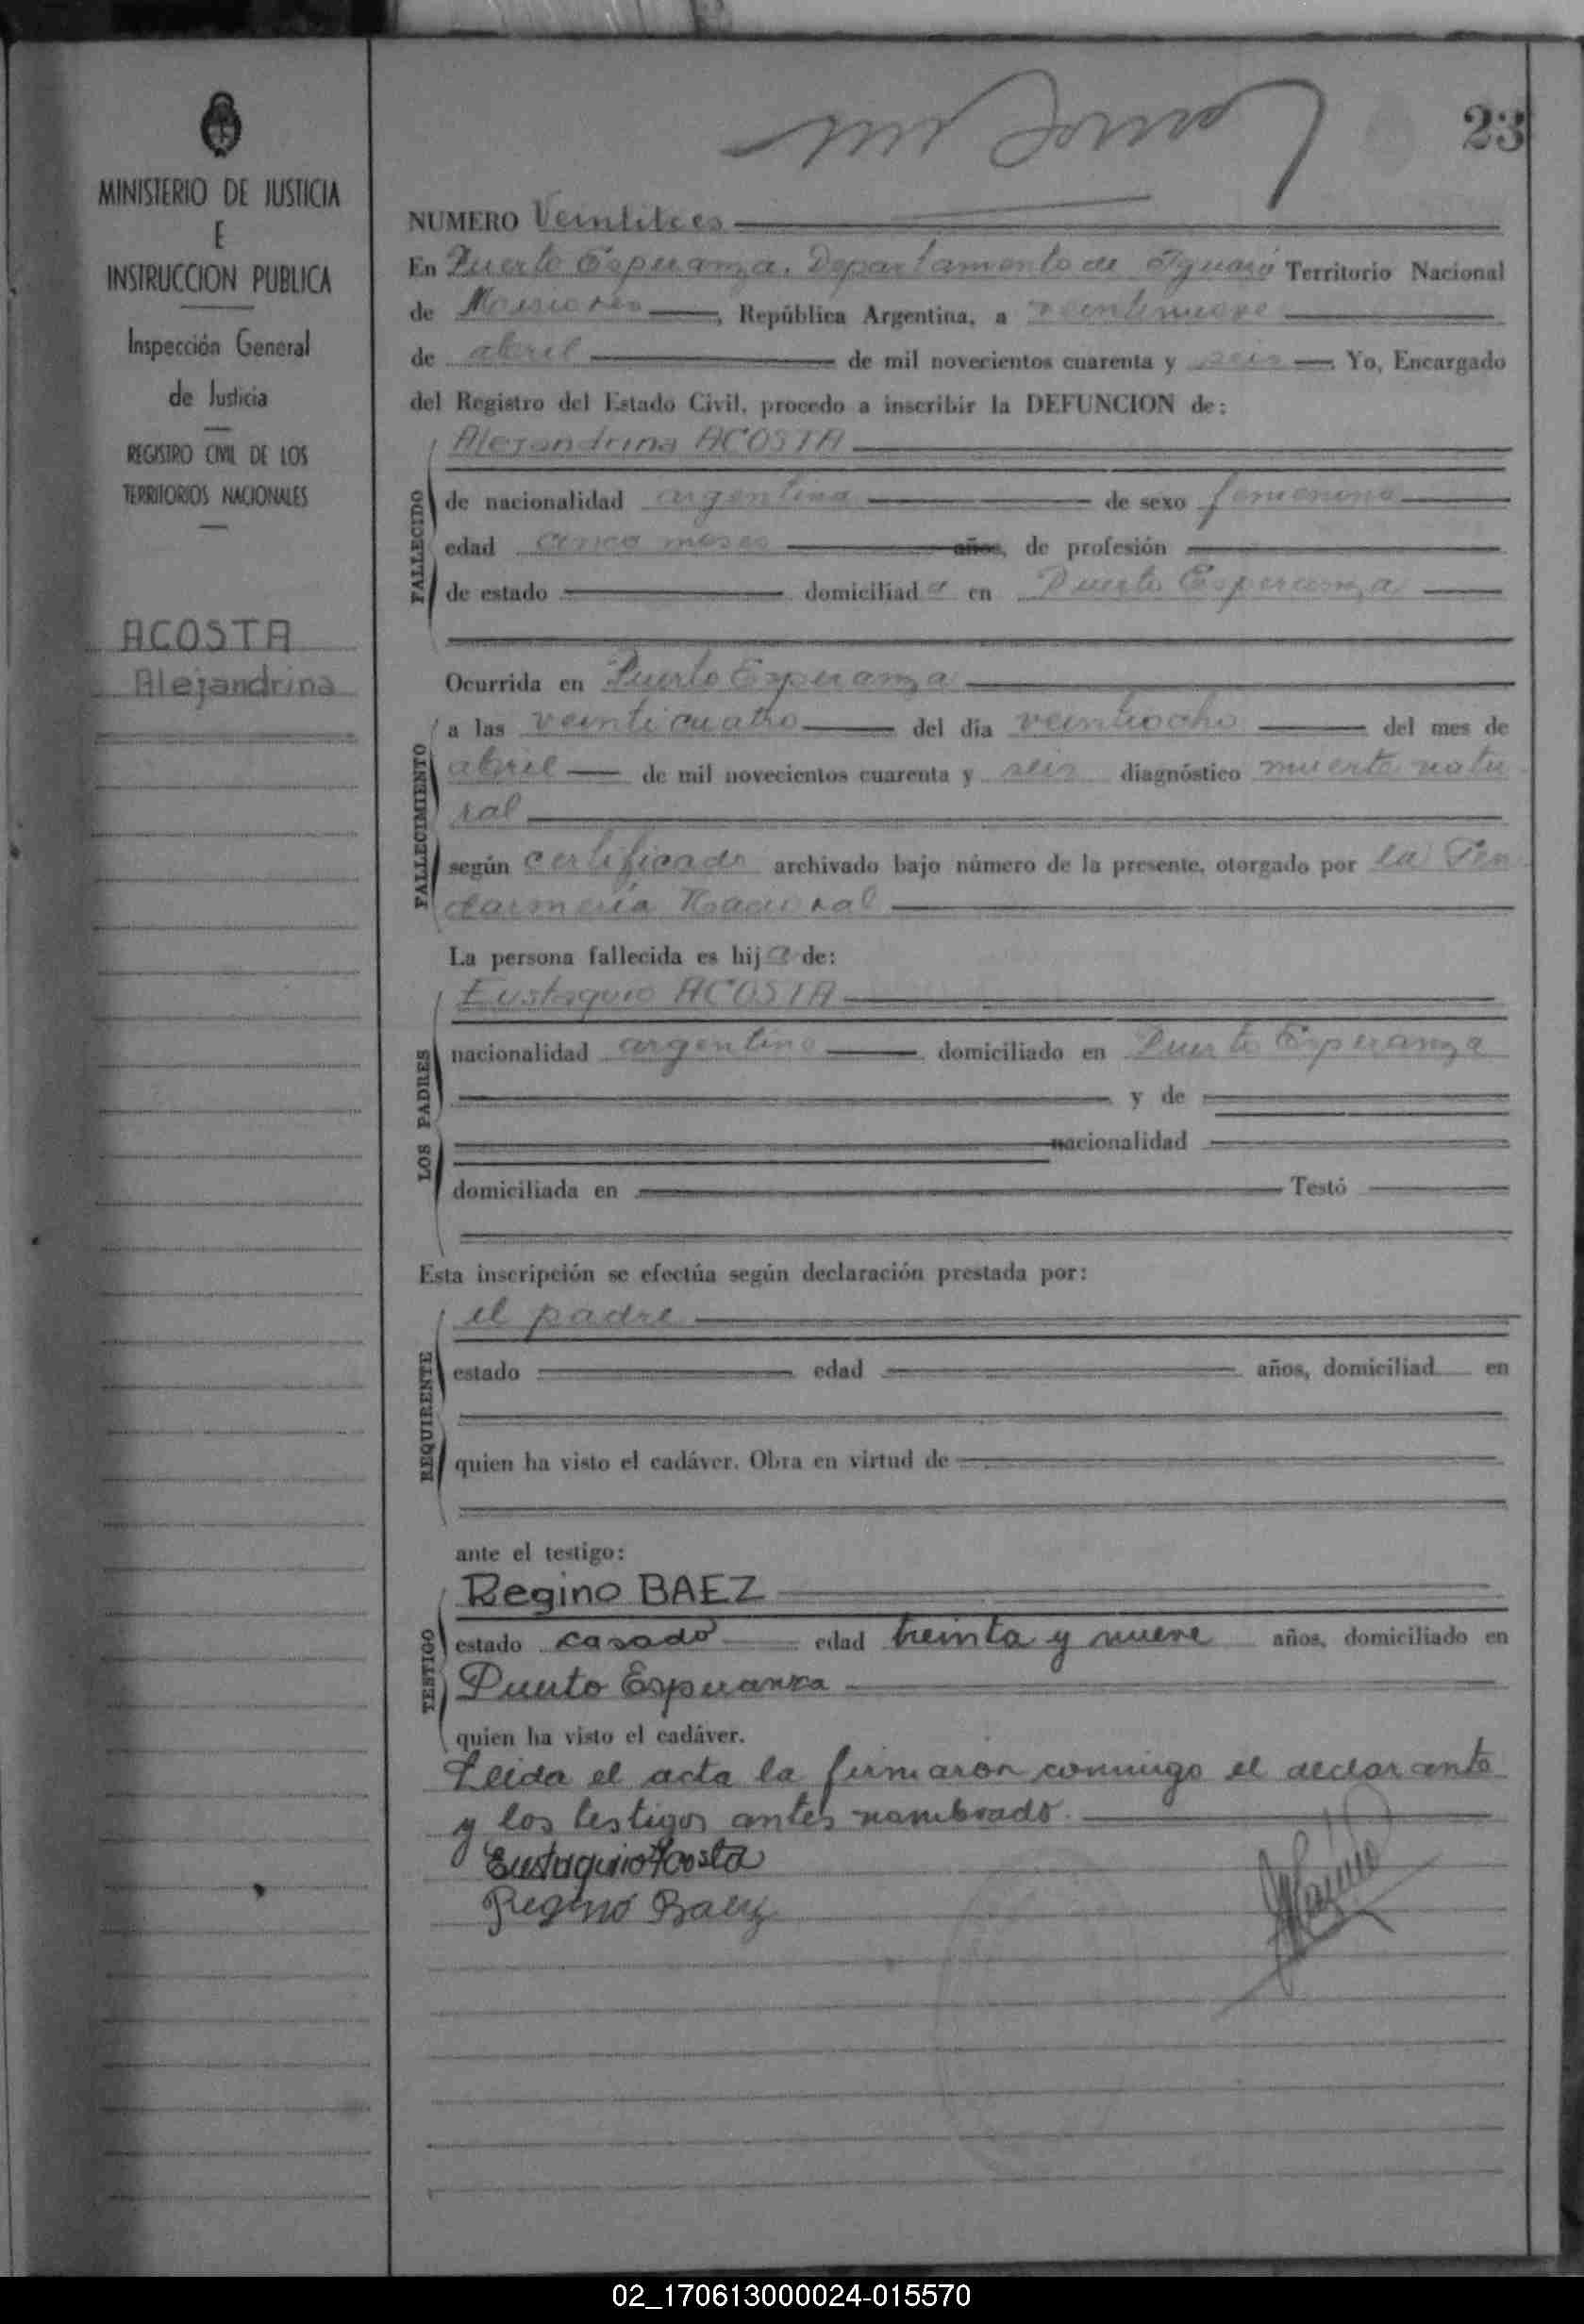 23
MINISTERIO DE JUSTICIA
E
INSTRUCCION PUBLICA
Inspección General
de Justicia
REGISTRO CIVIL DE LOS
TERRITORIOS NACIONALES
ACOSTA
Alejandrina
NUMERO Veintitres
En Puerto Esperanza, Departamento de Iguazú Territorio Nacional
de Misiones, República Argentina, a veintinueve
de abril de mil novecientos cuarenta y seis Yo, Encargado
del Registro del Estado Civil, procedo a inscribir la DEFUNCION de:
Alejandrina ACOSTA
FALLECIDO
de nacionalidad argentina de sexo femenono
edad cinco meses años, de profesión
de estado domiciliada en Puerto Esperanza
Ocurrida en Puerto Esperanza
FALLECIMIENTO
a las veinticuatro del día veintiocho del mes de
abril de mil novecientos cuarenta y seis diagnóstico muerte natu
ral
según certificado archivado bajo número de la presente, otorgado por la Gen
darmería Nacional
La persona fallecida es hija de:
LOS PADRES
Eustaquio ACOSTA
nacionalidad argentino domiciliado en Puerto Esperanza
y de
nacionalidad
domiciliada en Testó
Esta inscripción se efectúa según declaración prestada por:
REQUIRENTE
el padre
estado edad años, domiciliad en
quien ha visto el cadáver. Obra en virtud de
ante el testigo:
TESTIGO
Regino BAEZ
estado casado edad treinta y nueve años, domiciliado en
Puerto Esperanza
quien ha visto el cadáver.
Leida el acta la firmaron conmigo el declarante
y los testigos antes nombrado.
Eustaquio Acosta
Regino Baez
02_170613000024-015570